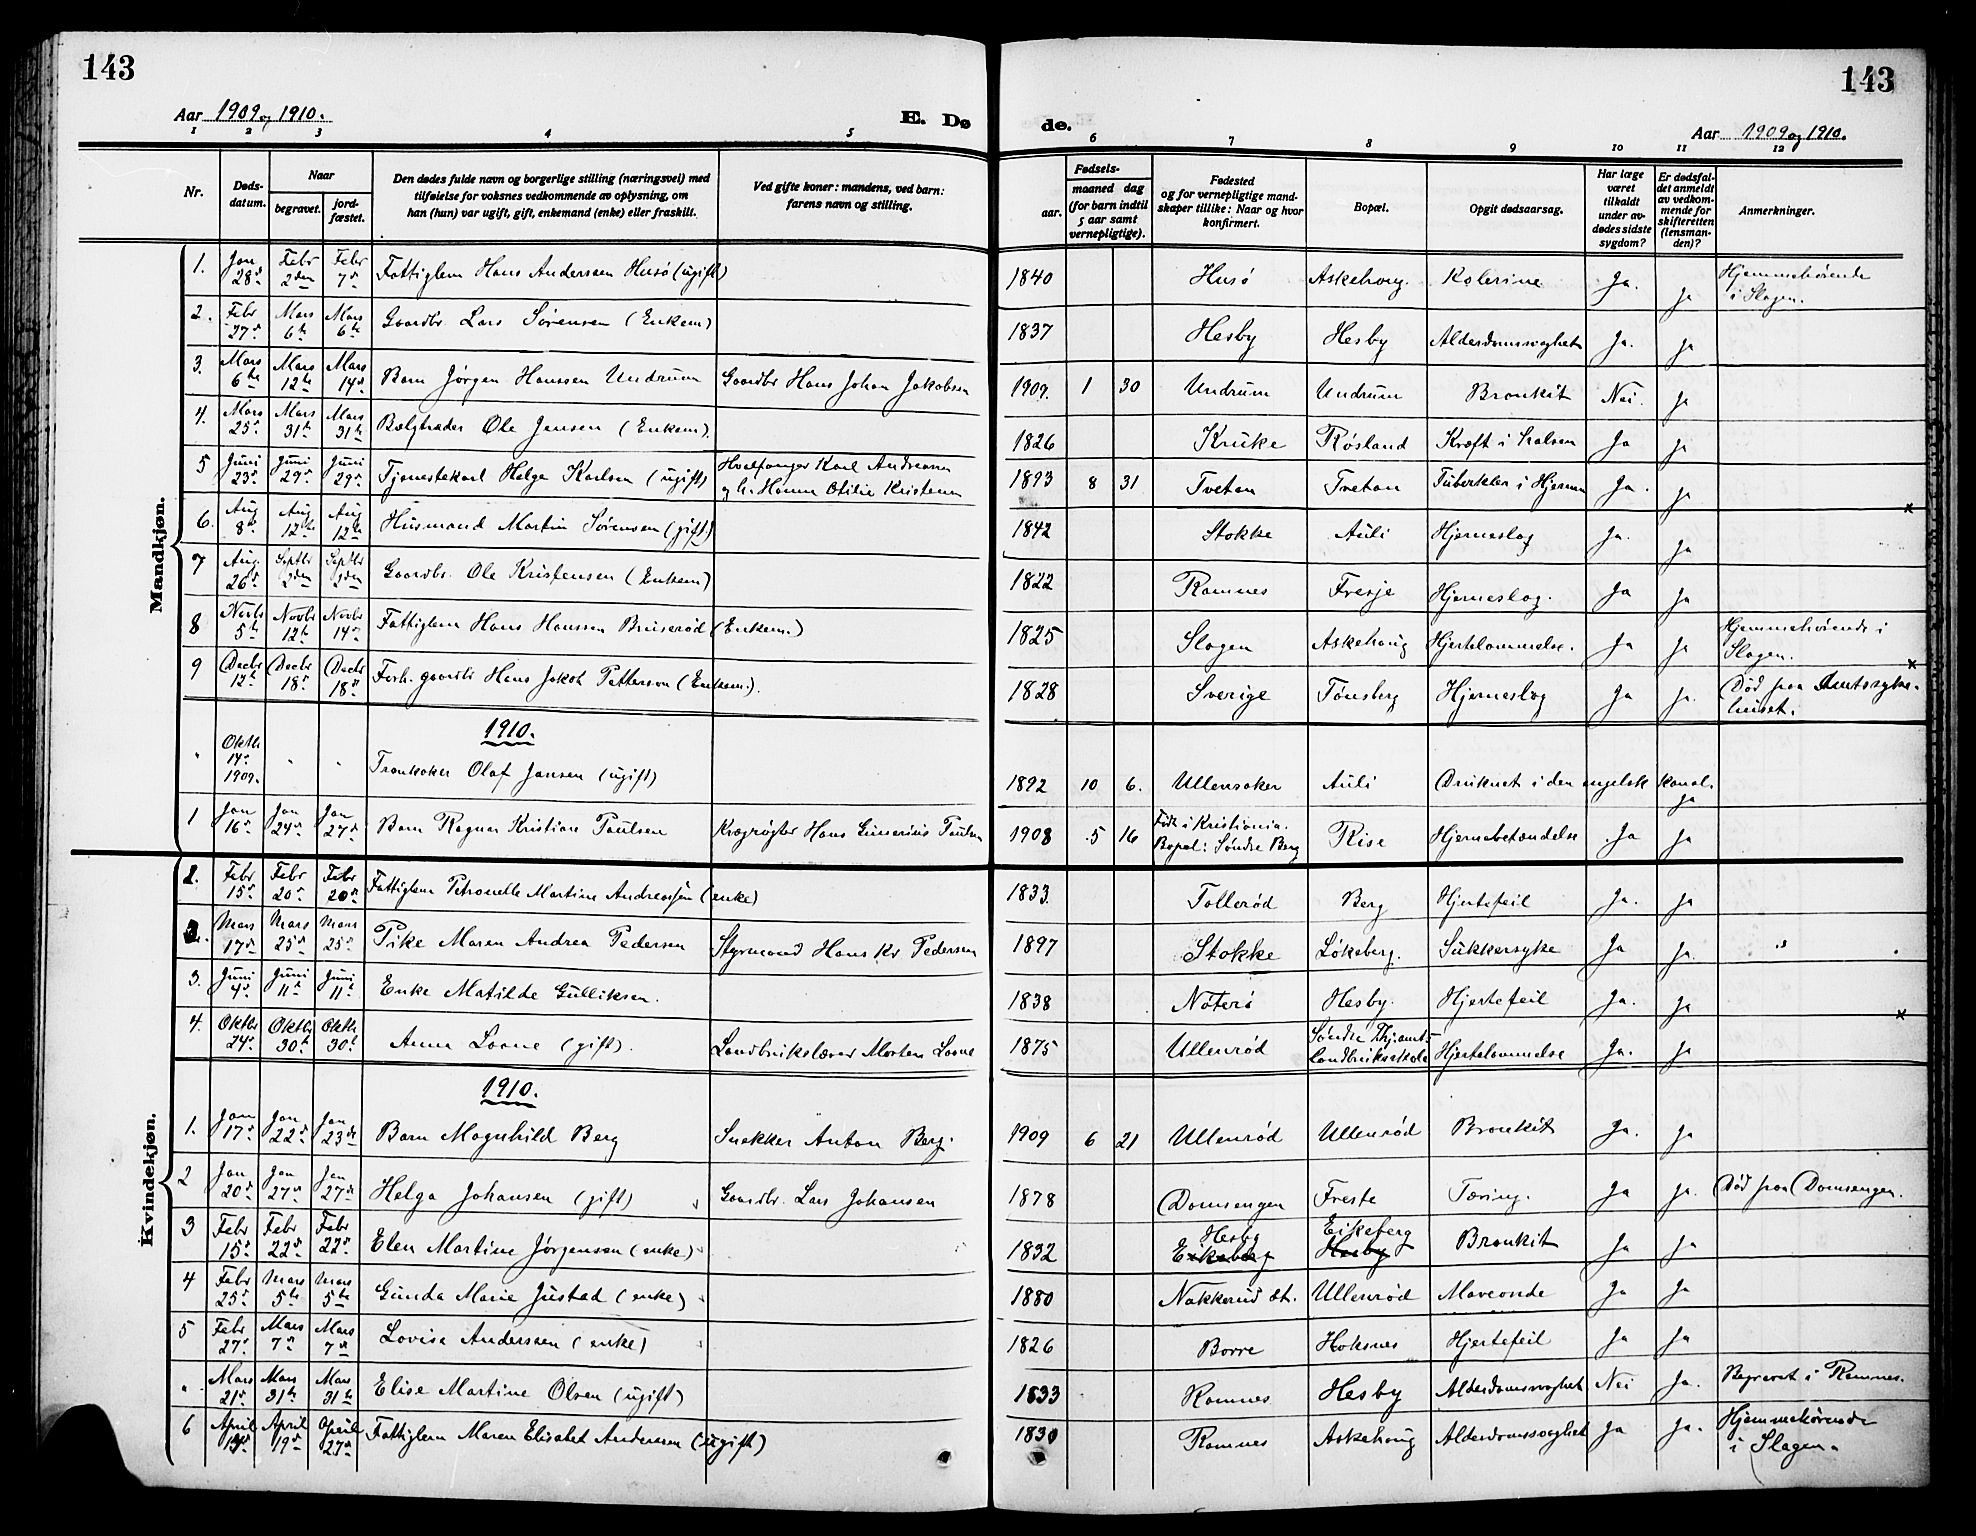 143
143
Aar 1909 og 1910.
E. Dø
de.
Aar 1909 og 1910.
1 2 3 4 5 6 7 8 9 10 11 12
Nr.
Døds-
datum.
Naar
begravet.
jord-
fæstet.
Den dødes fulde navn og borgerlige stilling (næringsvei) med
tilføielse for voksnes vedkommende av oplysning, om
han (hun) var ugift, gift, enkemand (enke) eller fraskilt.
Ved gifte koner: mandens, ved barn:
farens navn og stilling.
Fødsels-
aar.
maaned dag
(for barn indtil
5 aar samt
vernepligtige).
Fødested
og for vernepligtige mand-
skaper tillike: Naar og hvor
konfirmert.
Bopæl.
Opgit dødsaarsag.
Har læge
været
tilkaldt
under av-
dødes sidste
sygdom?
Er dødsfal-
det anmeldt
av vedkom-
mende for
skifteretten
(lensman-
den)?
Anmerkninger.
Mandkjøn.
1. Jan 28d Febr 2den Febr 7d Fattiglem Hans Andersen Husø (ugift) 1840 Husø Askehoug. Kolerine Ja. Ja Hjemmehørende
i Slagen.
2. Febr 27d Mars 6te Mars 6te Gaardbr. Lars Sørensen (Enkem) 1837 Hesby Hesby Alderdomssvaghet Ja. Ja
3. Mars 6te Mars 12te Mars 14d Barn Jørgen Hanssen Undrum Gaardbr Hans Johan Jakobsen 1909. 1 30 Undrum Undrum Bronkit Nei. Ja
4. Mars 25d Mars 31te Mars 31te Bælgtræder Ole Jensen (Enkem). 1826 Kruke Røsland Kræft i Ja Ja
5 Juni 23d Juni 29d Juni 29d Tjenestekarl Helge Karlsen (ugift) Hvalfanger Karl Andreasen
og h. Hanna Otilie Kristensen 1893 8 31 Tveton Tveton Tuberkler i Hjernen Ja. Ja
6. Aug 8d Aug 12te Aug 12te Husmand Martin Sørensen (gift) 1842 Stokke Auli Hjerneslag Ja. Ja x
7 Aug. 26d Septbr 2den Septbr 2den Gaardbr. Ole Kristensen (Enkem) 1822 Ramnes Fresje Hjerneslag. Ja Ja
8 Novbr 5te Novbr 12te Novbr 14d Fattiglem Hans Hanssen Bruserød (Enkem.) 1825 Slagen Askehaug Hjertelammelse. Ja Ja Hjemmehørende i
Slagen. x
9 Decbr 12te Decbr 18d Decbr 18d Forh. gaardbr Hans Jakob Petterson (Enkem.). 1828 Sverige Tønsberg Hjerneslag Ja Ja. Død paa Amtssyke-
huset.
1910.
" Oktbr 14d 1909. " " Trankoker Olaf Jansen (ugift) 1892 10 6. Ullensaker Auli Druknet i den engelsk kanal. Ja
1 Jan 16d Jan 24d Jan 27d Barn Ragnar Kristian Paulsen Kvægrøgter Hans Gunerius Paulsen 1908 5 16 Født i Kristiania.
Bopæl: Søndre Berg Rise Hjernebetændelse Ja Ja
Kvindekjøn.
1. Febr 15d Febr 20d Febr 20d Fattiglem Petronelle Martine Andreassen (enke) 1833. Tollerød Berg Hjertefeil Ja. Ja
2. Mars 17d Mars 25d Mars 25d Pike Maren Andrea Pedersen Styrmand Hans Kr Pedersen 1897 Stokke Løkeberg. Sukkersyke Ja Ja
3. Juni 4d Juni 11te Juni 11te Enke Matilde Gulliksen. 1838 Nøterø Hesby. Hjertefeil Ja. Ja
4. Oktbr 24d Oktbr 30te Oktbr 30te Anna Loone (gift). Landbrukslærer Morten Loone 1875 Ullenrød Søndre Thj. amts
landbruksskole Hjertelammelse Ja. Ja x
1910.
1. Jan 17d Jan 22d Jan 23de Barn Magnhild Berg Snekker Anton Berg. 1909 6 21 Ullenrød Ullenrød Bronkit Ja. Ja
2 Jan 20d Jan 27d Jan 27d Helga Johansen (gift) Gaardbr. Lars Johansen 1878 Domsengen Freste Tæring. Ja Ja. Død paa Domsengen.
3 Febr 15d Febr 22d Febr 22d Elen Martine Jørgensen (enke) 1832 Hesby
Eikeberg Eikeberg
Hesby Bronkit Ja Ja
4 Febr 25d Mars 5te Mars 5te Gunda Marie Justad (enke) 1880 Nakkerud st. Ullenrød Maveonde Ja Ja
5 Febr 27d Mars 7d Mars 7de Lovise Anderssen (enke) 1826 Borre Haksnes Hjertefeil Ja Ja
" Mars 21d Mars 31te Mars 31te Elise Martine Olsen (ugift) 1833 Ramnes Hesby Alderdomssvaghet Nei Ja. Begravet i Ramnes.
6 April April 19d April 27d Fattiglem Maren Elisabet Andersen (ugift) 1830 Ramnes Askehoug Alderdomssvaghet Ja Ja. Hjemmehørende
i Slagen.